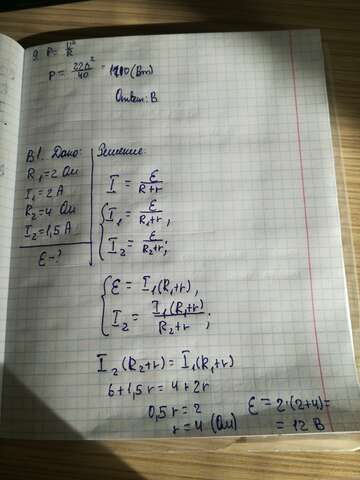 9. P = U²/R
P = 220²/40 = 1210 (Вт)
Ответ: В
В1. Дано:
R₁ = 2 Ом
I₁ = 2 А
R₂ = 4 Ом
I₂ = 1,5 А
ℰ - ?
Решение:
I = ℰ/(R+r)
{ I₁ = ℰ/(R₁+r) ,
I₂ = ℰ/(R₂+r) ;
{ ℰ = I₁(R₁+r),
I₂ = I₁(R₁+r)/(R₂+r) ;
I₂(R₂+r) = I₁(R₁+r)
6+1,5r = 4+2r
0,5r = 2
r = 4 (Ом)
ℰ = 2·(2+4) =
= 12 В